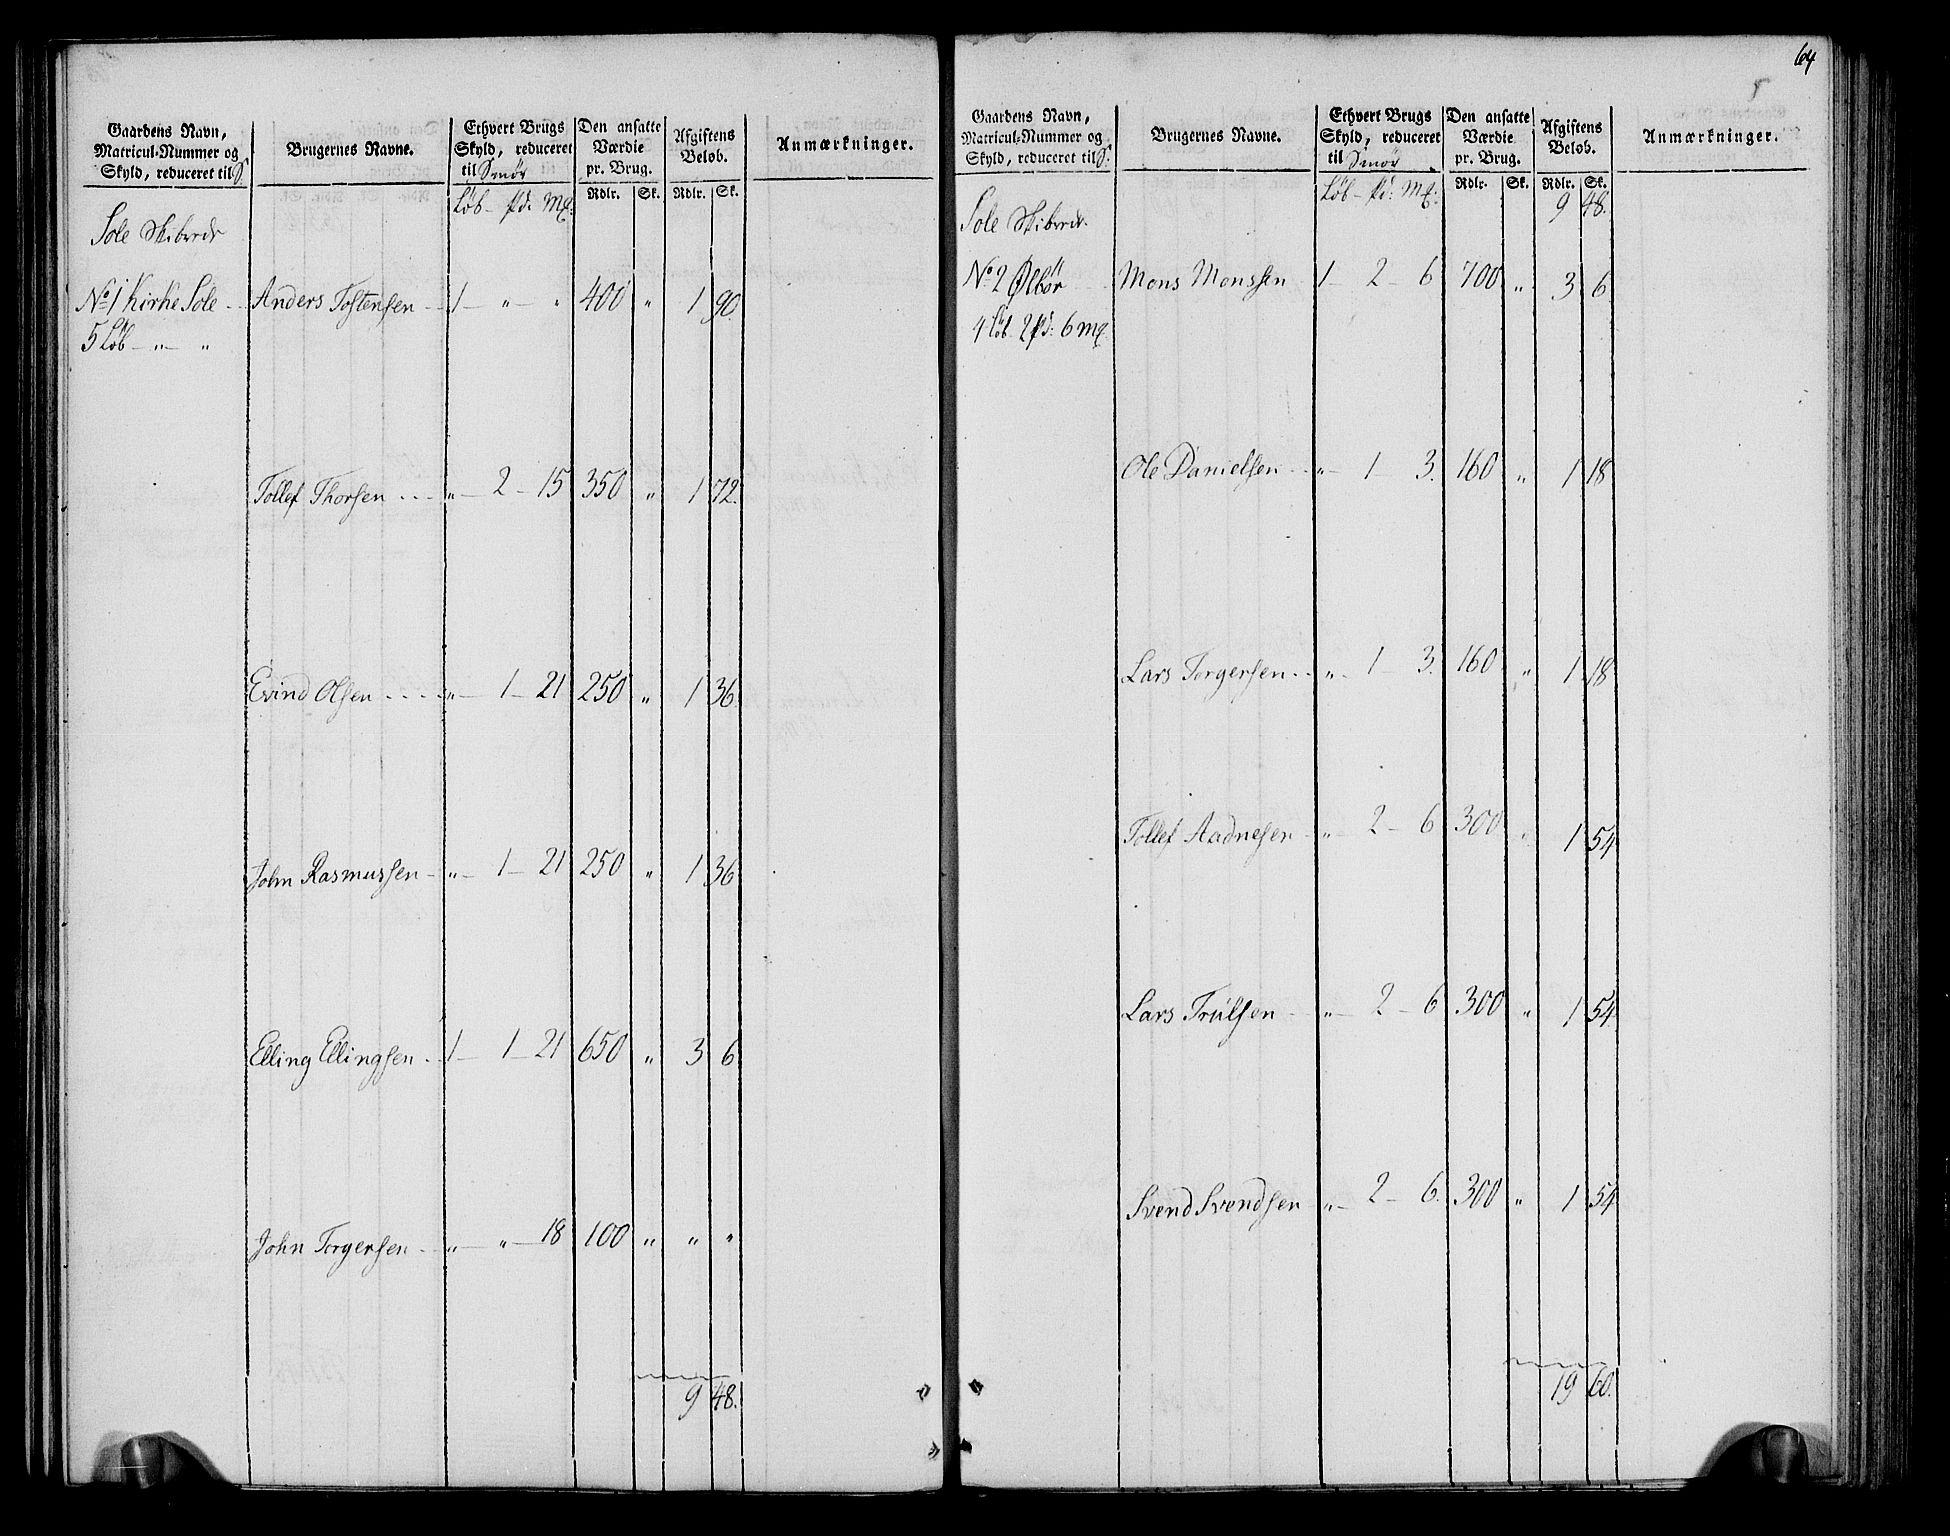 64
5
Gaardens Navn, Matricul-Nummer og Skyld, reduceret til S. | Brugernes Navne. | Ethvert Brugs Skyld, reduceret til Smör | Den ansatte Værdie pr. Brug. | Afgiftens Beløb. | Anmærkninger.
Løb – pd: Mk: | Rdlr. | Sk. | Rdlr. | Sk.
Sole Skibrede
No 1 Kirke Sole Anders Tostensen 1 – " – " 400 " 1 90.
5 Løb – " – "
Tollef Thorsen " – 2 – 15 350 " 1 72.
Evind Olsen " – 1 – 21 250 " 1 36
John Rasmussen " – 1 – 21 250 " 1 36
Elling Ellingsen 1 – 1 – 21 650 " 3 6
John Torgersen " – " – 18 100 " " "
9 48.
Gaardens Navn, Matricul-Nummer og Skyld, reduceret til S. | Brugernes Navne. | Ethvert Brugs Skyld, reduceret til Smör | Den ansatte Værdie pr. Brug. | Afgiftens Beløb. | Anmærkninger.
Løb – pd: Mk: | Rdlr. | Sk. | Rdlr. | Sk.
9 48.
Sole Skibrede
No 2 Ølbör Mons Monssen 1 – 2 – 6 700 " 3 6
4 Løb 2 pd: 6 mk.
Ole Danielsen " – 1 – 3. 160 " 1 18
Lars Torgersen " – 1 – 3. 160 " 1 18
Tollef Aadnesen " – 2 – 6 300 " 1 54
Lars Trulsen " – 2 – 6 300 " 1 54
Svend Svendsen " – 2 – 6. 300 " 1 54
19 60.